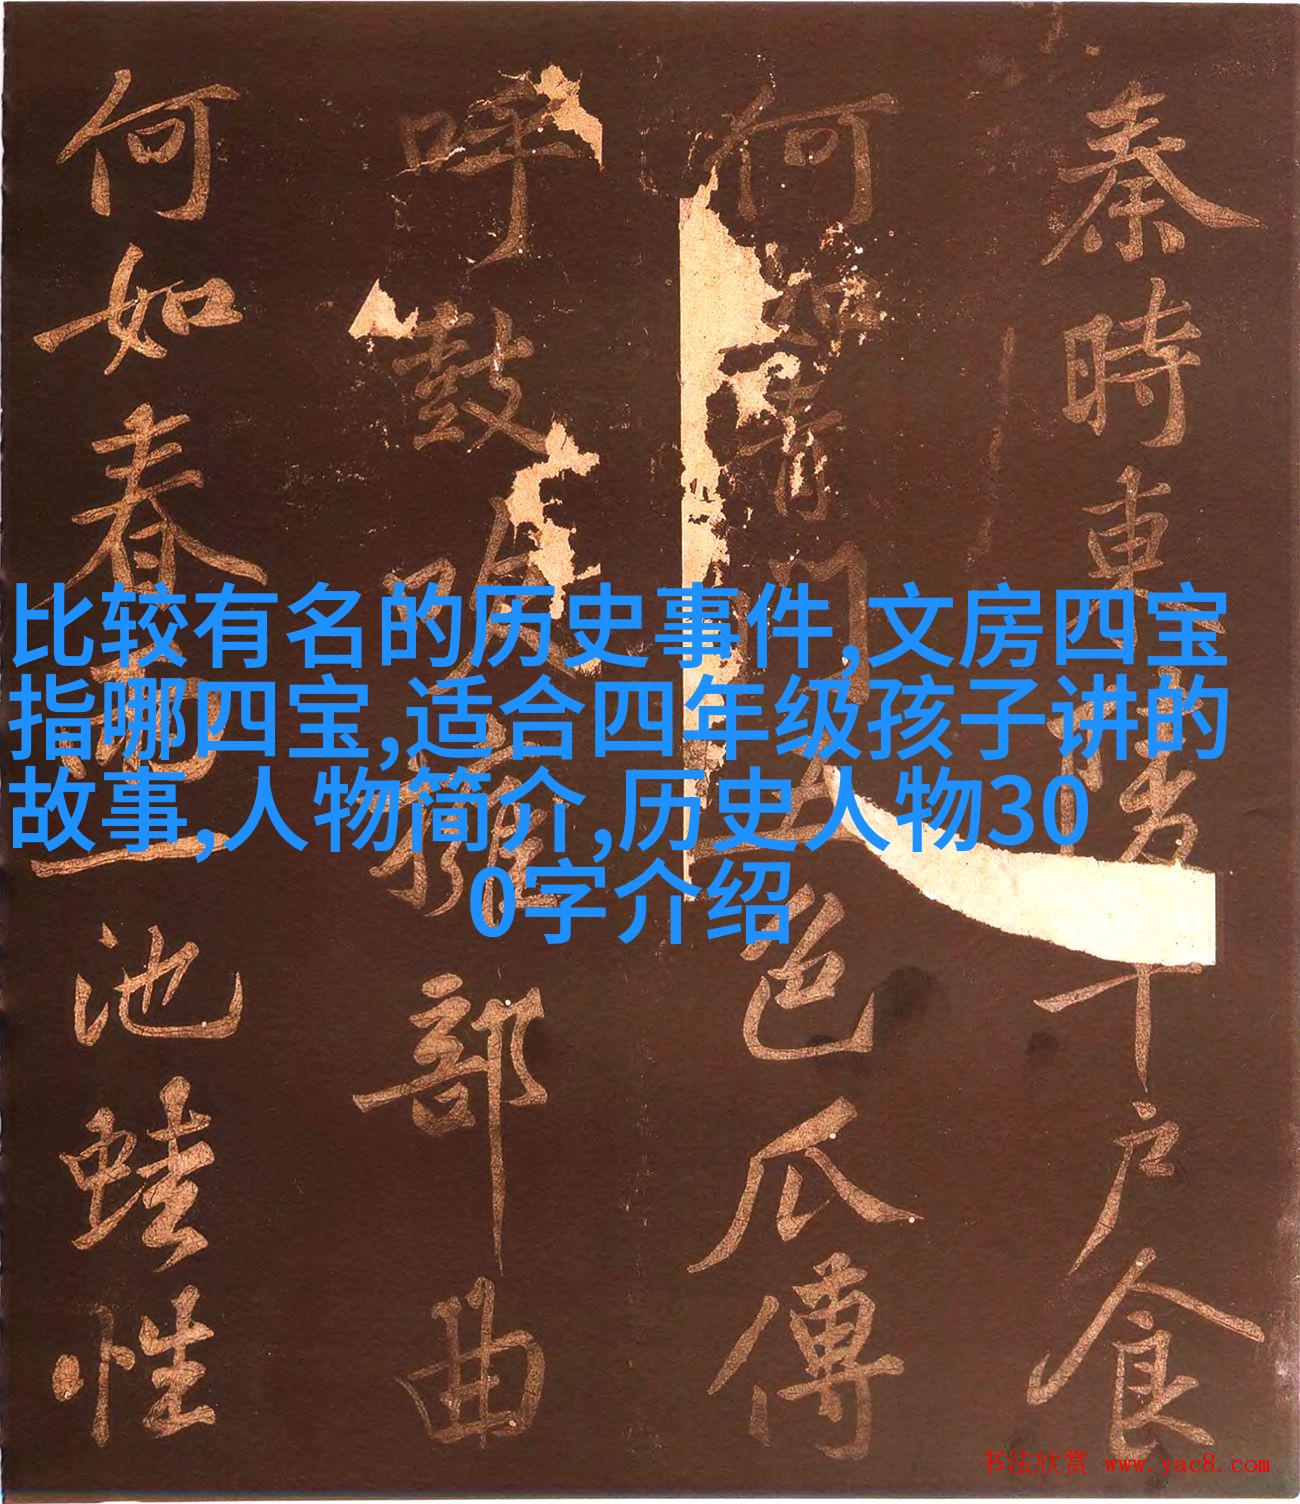 秦時東陵千戶食
何如青門五色瓜傳
呼鼓吹擁部曲
何如春一池蛙性
比较有名的历史事件,文房四宝
指哪四宝,适合四年级孩子讲的
故事,人物简介,历史人物30
0字介绍
书法欣赏 www.yac8.com